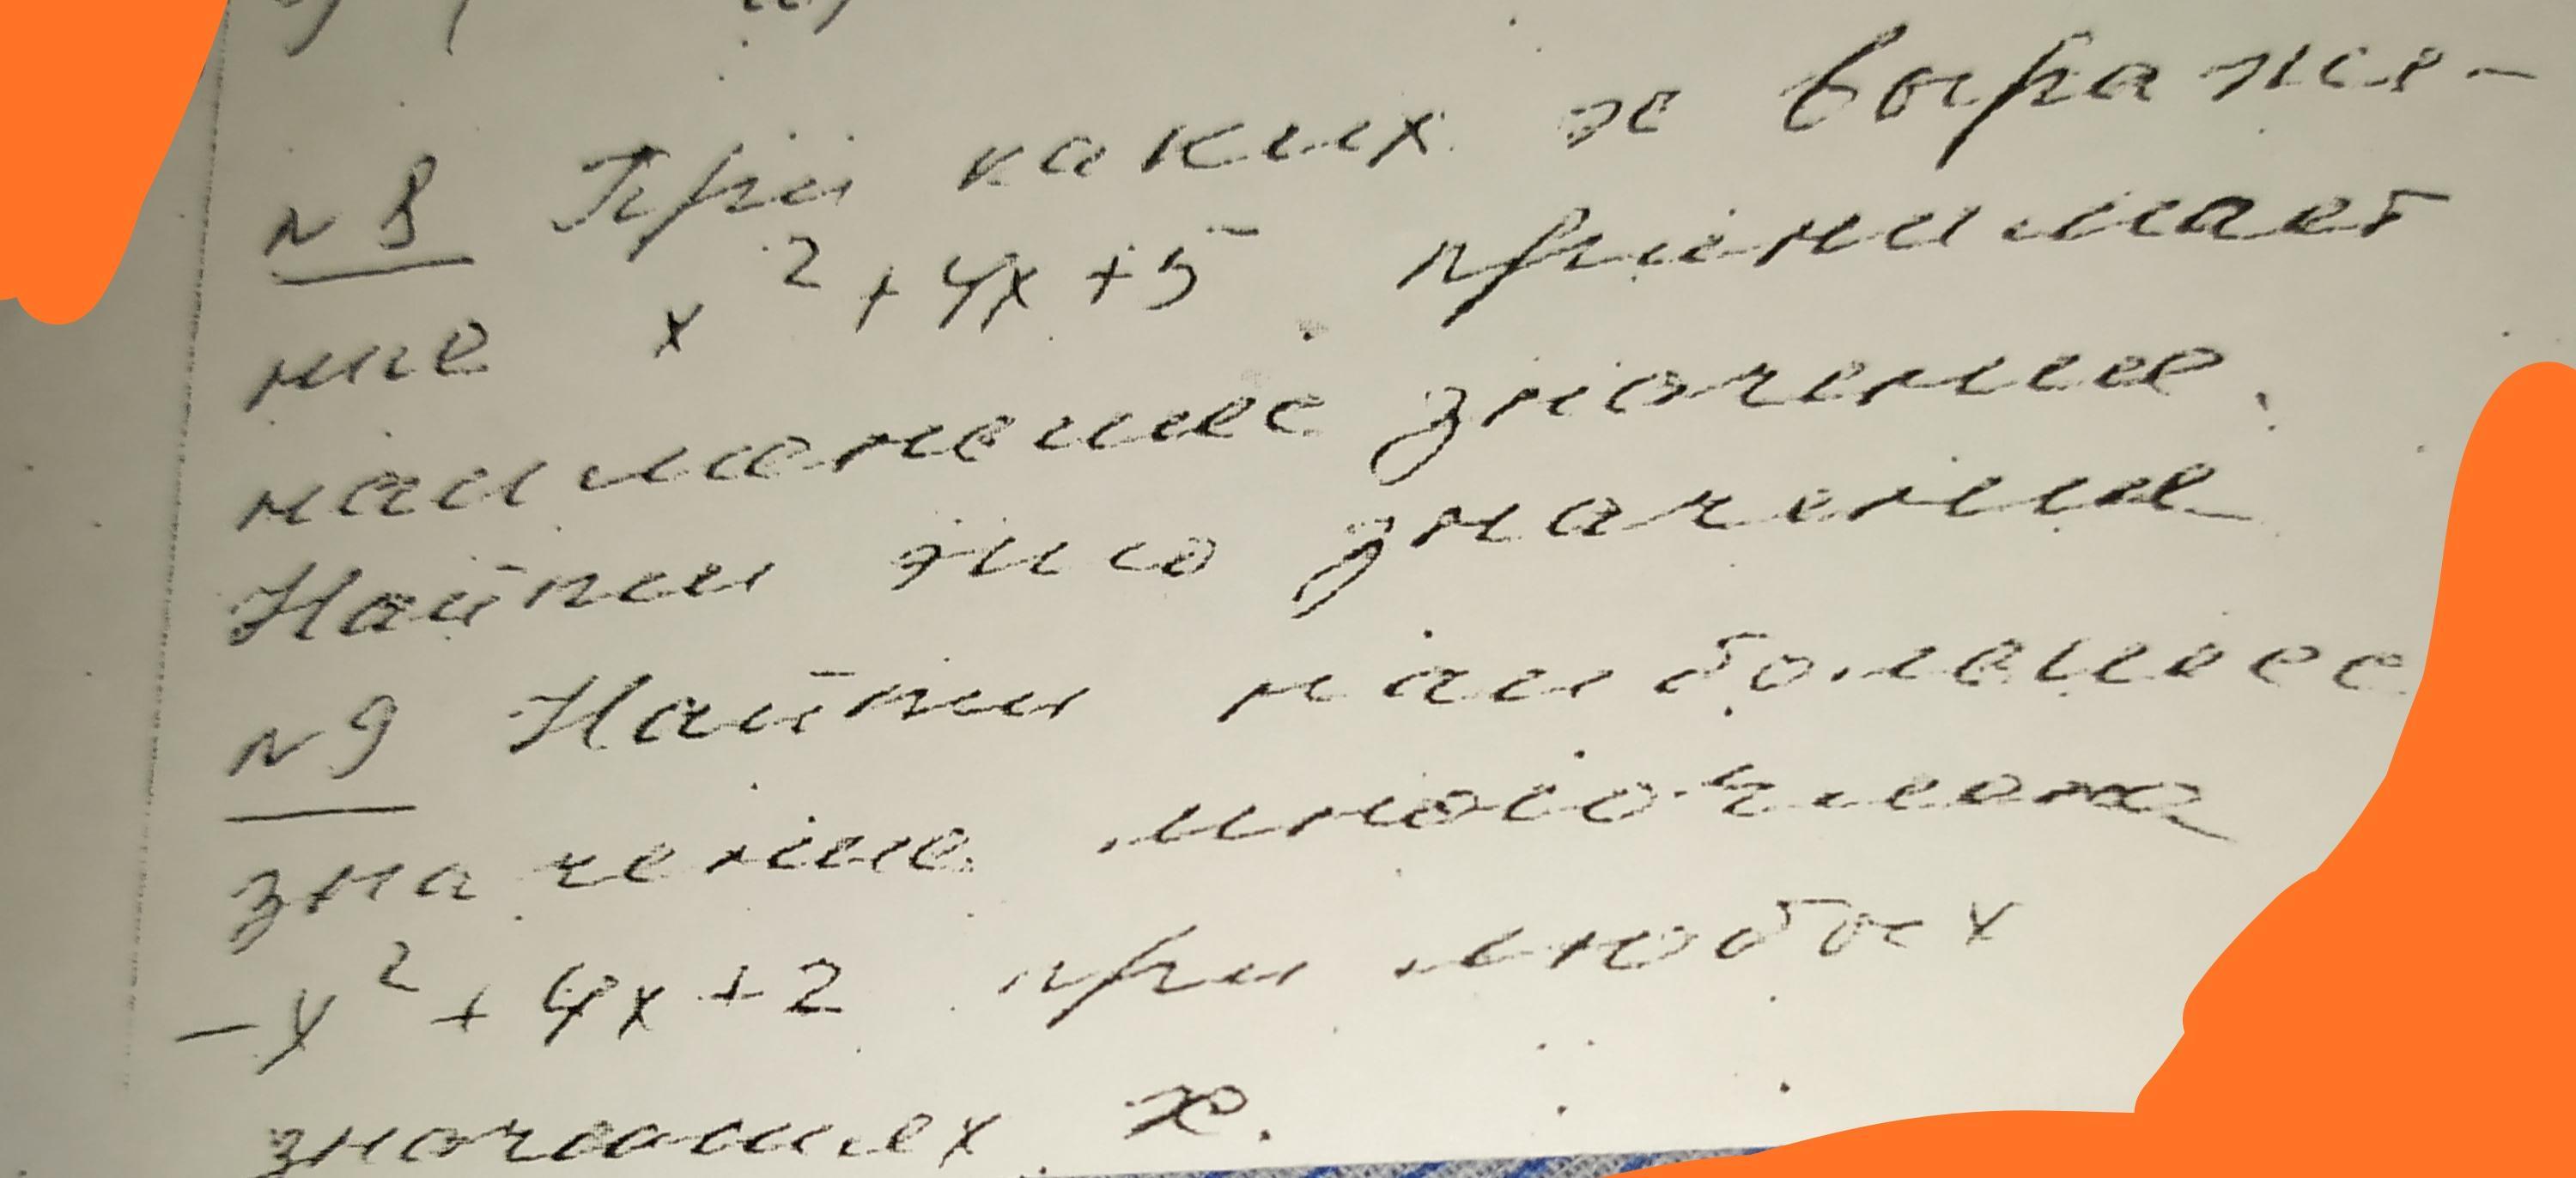 №8 При каких х выраже-
ние x² + 4x + 5 принимает
наименьшее значение.
Найти это значение
№9 Найти наибольшее
значение многочлена
-x² + 4x + 2 при любых
значениях х.